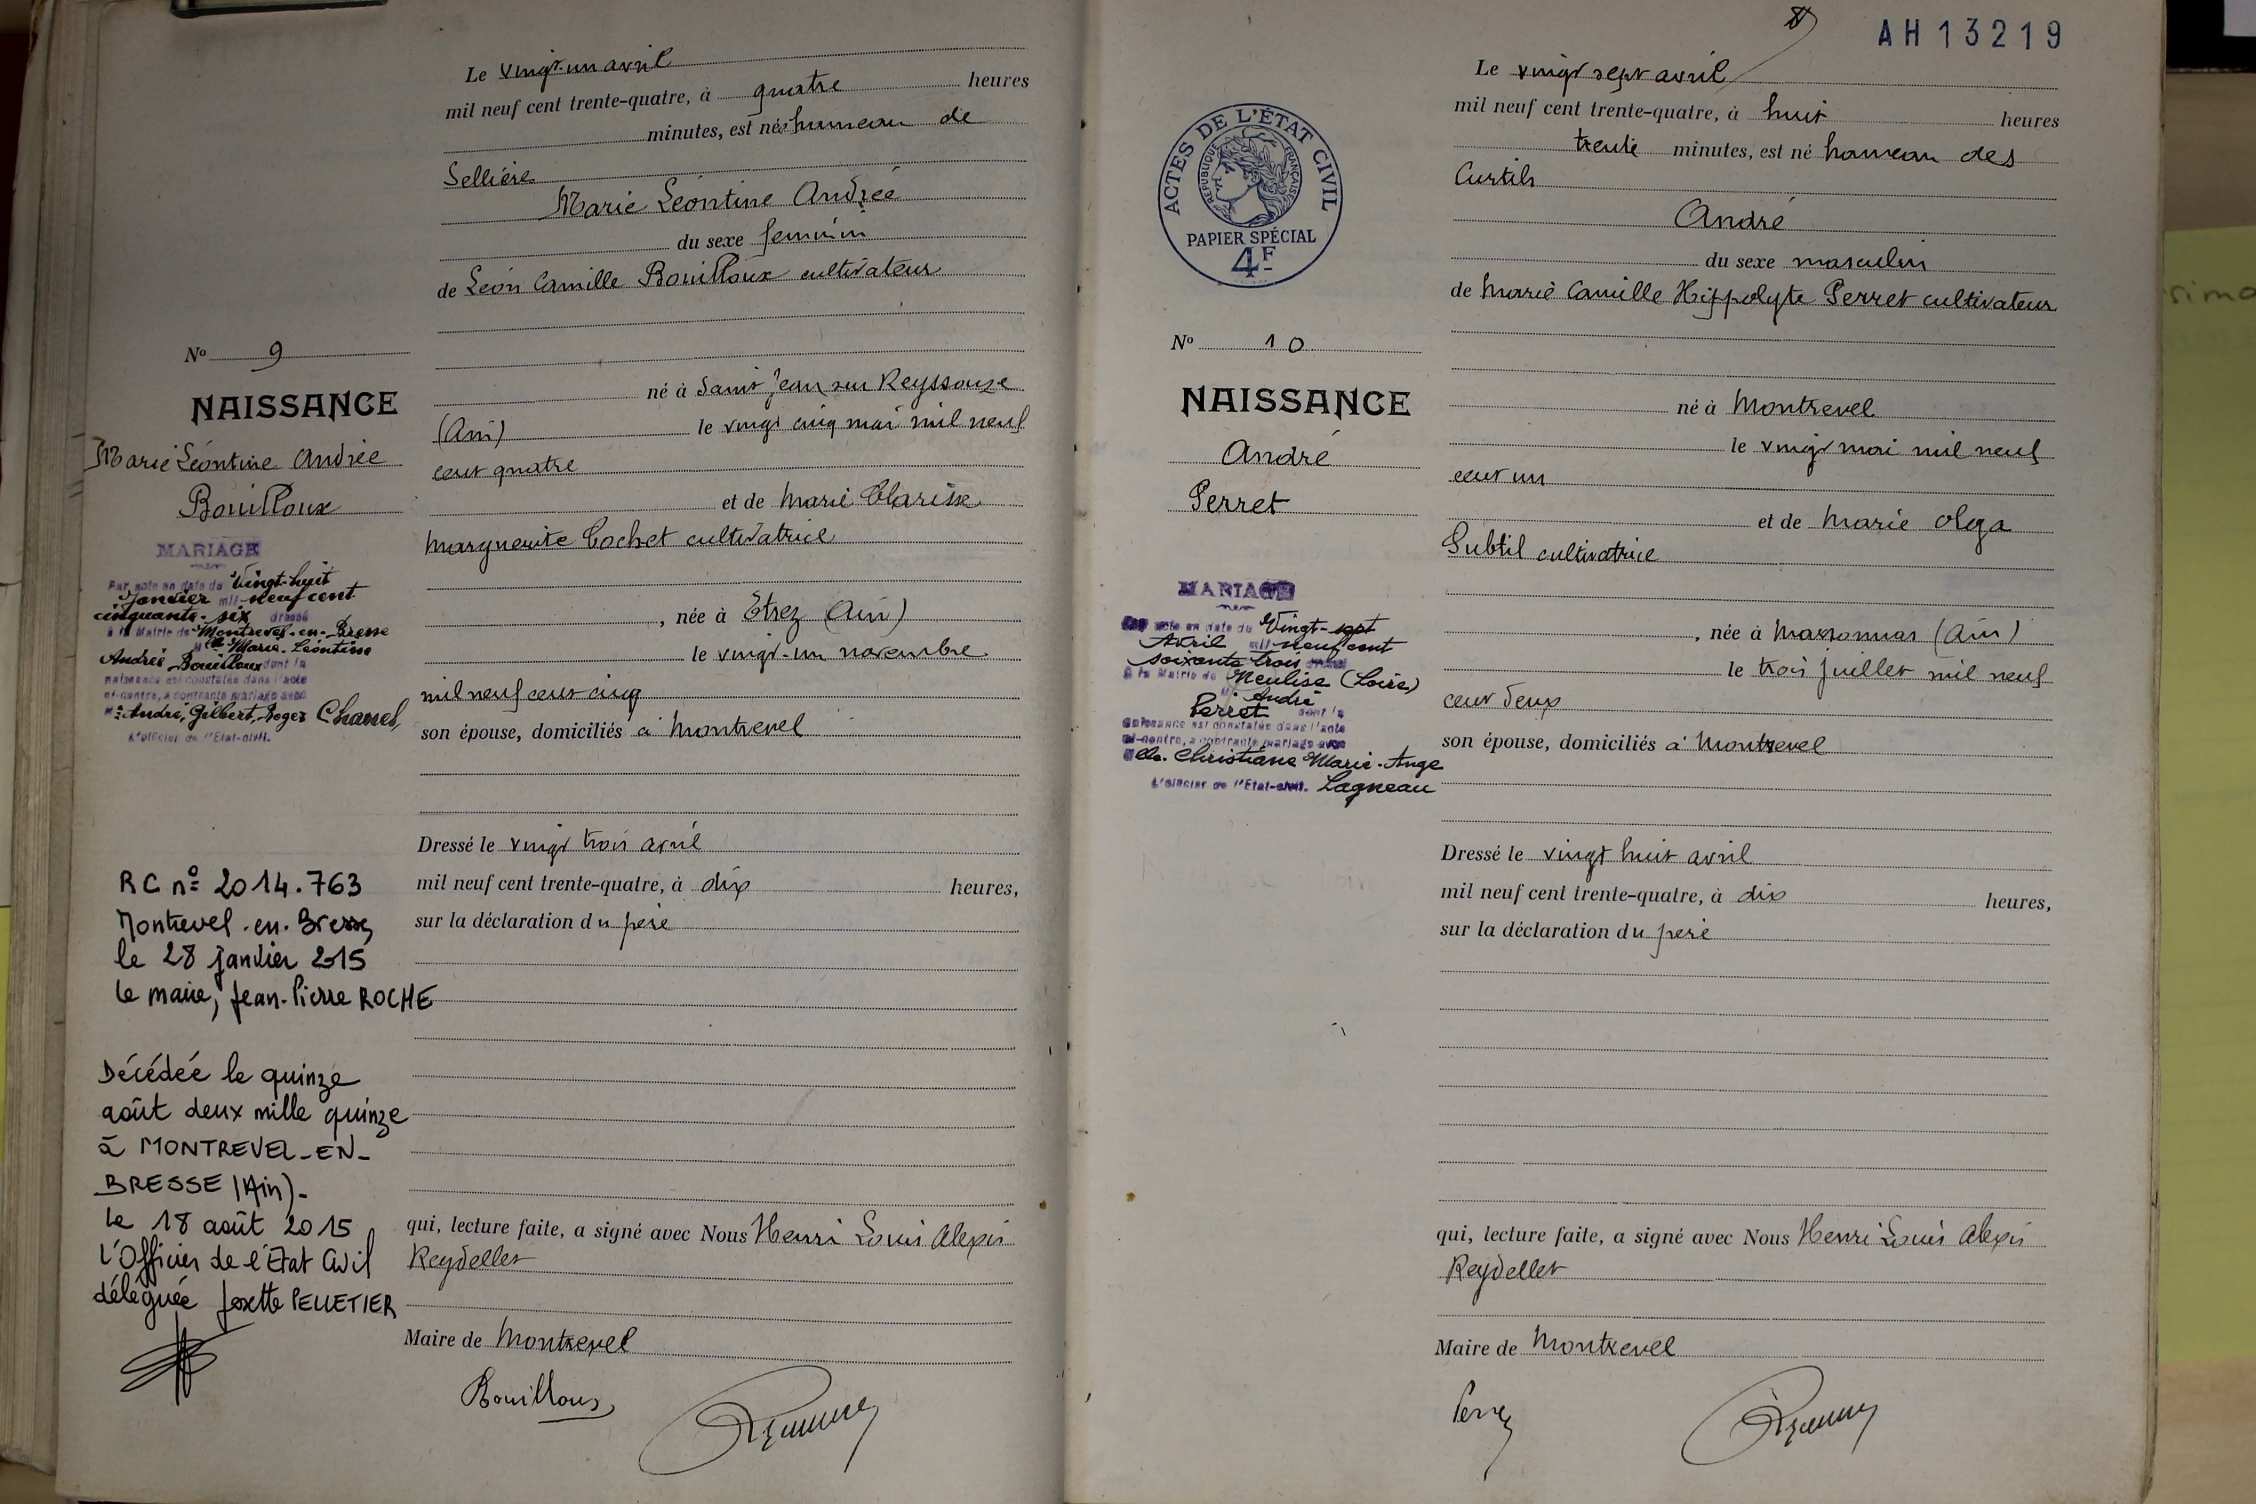 Le vingt-un avril
mil neuf cent trente-quatre, à quatre heures
minutes, est née hameau de
Sellières
Marie Léontine Andrée
du sexe féminin
de Léon Camille Bouilloux cultivateur
né à Saint Jean sur Reyssouze
(Ain) le vingt cinq mai mil neuf
cent quatre
et de Marie Clarisse
Marguerite Cochet cultivatrice
, née à Etrez (Ain)
le vingt-un novembre
mil neuf cent cinq
son épouse, domiciliés à Montrevel
Dressé le vingt trois avril
mil neuf cent trente-quatre, à dix heures,
sur la déclaration du père
qui, lecture faite, a signé avec Nous Henri Louis Alexis
Reydellet
Maire de Montrevel
Bouilloux
No 9
NAISSANCE
Marie Léontine Andrée
Bouilloux
MARIAGE
Par acte en date du Vingt-huit
Janvier mil-neuf cent
cinquante-six dressé
à la Mairie de Montrevel-en-Bresse
Mlle Marie-Léontine
Andrée Bouilloux dont la
naissance est constatée dans l'acte
ci-contre, a contracté mariage avec
Mr André, Gilbert, Roger Chanel
L'officier de l'Etat-civil.
RC nº 2014.763
Montrevel-en-Bresse,
le 28 janvier 2015
le maire, Jean-Pierre ROCHE
Décédée le quinze
août deux mille quinze
à MONTREVEL-EN-
BRESSE (Ain)-
Le 18 août 2015
L'Officier de l'Etat Civil
déléguée Josette PELLETIER
8
AH13219
Le vingt sept avril
mil neuf cent trente-quatre, à huit heures
trente minutes, est né hameau des
Curtils
André
du sexe masculin
de Marie Camille Hippolyte Perret cultivateur
né à Montrevel
le vingt mai mil neuf
cent un
et de Marie Olga
Subtil cultivatrice
, née à Marsonnas (Ain)
le trois juillet mil neuf
cent deux
son épouse, domiciliés à Montrevel
Dressé le vingt huit avril
mil neuf cent trente-quatre, à dix heures,
sur la déclaration du père
qui, lecture faite, a signé avec Nous Henri Louis Alexis
Reydellet
Maire de Montrevel
Perret
ACTES DE L'ÉTAT CIVIL
RÉPUBLIQUE FRANÇAISE
PAPIER SPÉCIAL
4F
No 10
NAISSANCE
André
Perret
MARIAGE
Par acte en date du Vingt-sept
Avril mil-neuf cent
soixante trois dressé
à la Mairie de Neulise (Loire)
Mr André
Perret dont la
naissance est constatée dans l'acte
ci-contre, a contracté mariage avec
Melle. Christiane Marie-Ange
L'officier de l'Etat-civil. Lagneau